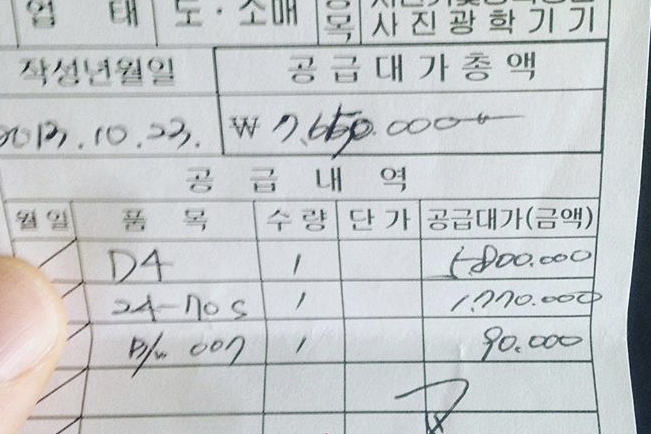 업 태 도 · 소매 목 사진광학기기
작성년월일 공급대가총액
2013.10.23. ₩ 7.660.000
공 급 내 역
월 일 품 목 수 량 단 가 공급대가(금액)
D4 1 5800.000
24-70 S 1 1.770.000
B/W 007 1 90.000